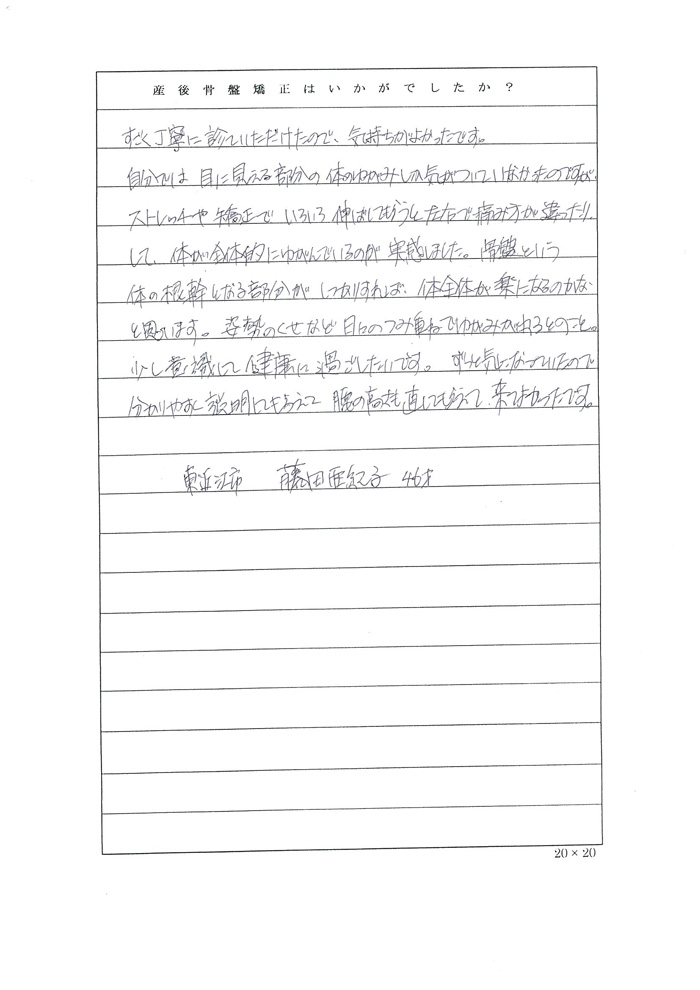 産後骨盤矯正はいかがでしたか？
すごく丁寧に診ていただけたので、気持ちがよかったです。
自分では目に見える部分の体のゆがみしか気がついていなかったのですが、
ストレッチや矯正でいろいろ伸ばしてもらうと左右で痛み方が違ったり
して、体が全体的にゆがんでいるのが実感しました。骨盤という
体の根幹となる部分がしっかりすれば、体全体が楽になるのかな
と思います。姿勢のくせなど日々のつみ重ねでゆがみがでるとのこと。
少し意識して健康に過ごしたいです。ずっと気になっていたので
分かりやすく説明してもらえて腰の高さも直してもらえて、来てよかったです。
東近江市 藤田亜紀子 46才
20×20